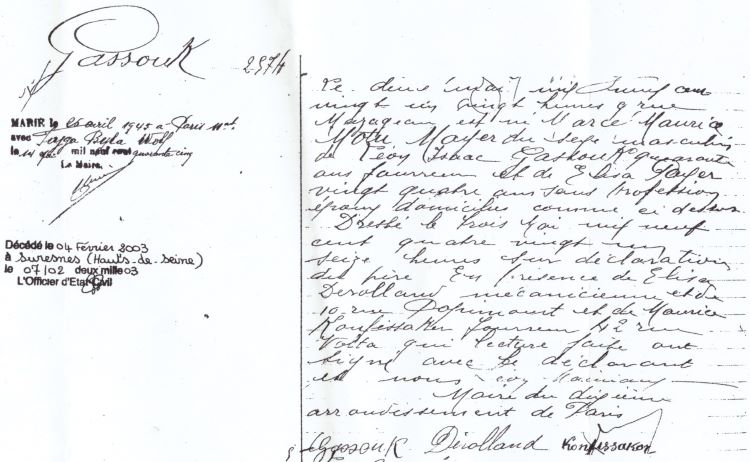 Gassouk
297/1
MARIÉ le avril 1945 à Paris
avec Tayga Byla
le mil neuf cent quarante cinq
Le Maire,
Décédé le 04 Février 2003
à Suresnes (Hauts-de-Seine)
le 07/02 deux mille 03
L'Officier d'Etat Civil
Le deux mai mil neuf cent
vingt un vingt heures 9 rue
Mazagran est né Marcel Maurice
Mayer du sexe masculin
de Léon Isaac Gassouk quarante
ans fourreur et de Elisa Gayer
vingt quatre ans sans profession
époux domiciliés comme ci dessus
Dressé le trois Mai mil neuf
cent quatre vingt un
seize heures sur déclaration
du père En présence de Elisa
Dérolland mécanicienne et de
10 rue Popincourt et de Maurice
Konfissaken fourreur 42 rue
Volta qui lecture faite ont
signé avec le déclarant
et nous
Maire du dixième
arrondissement de Paris
Gassouk Dérolland Konfissakon